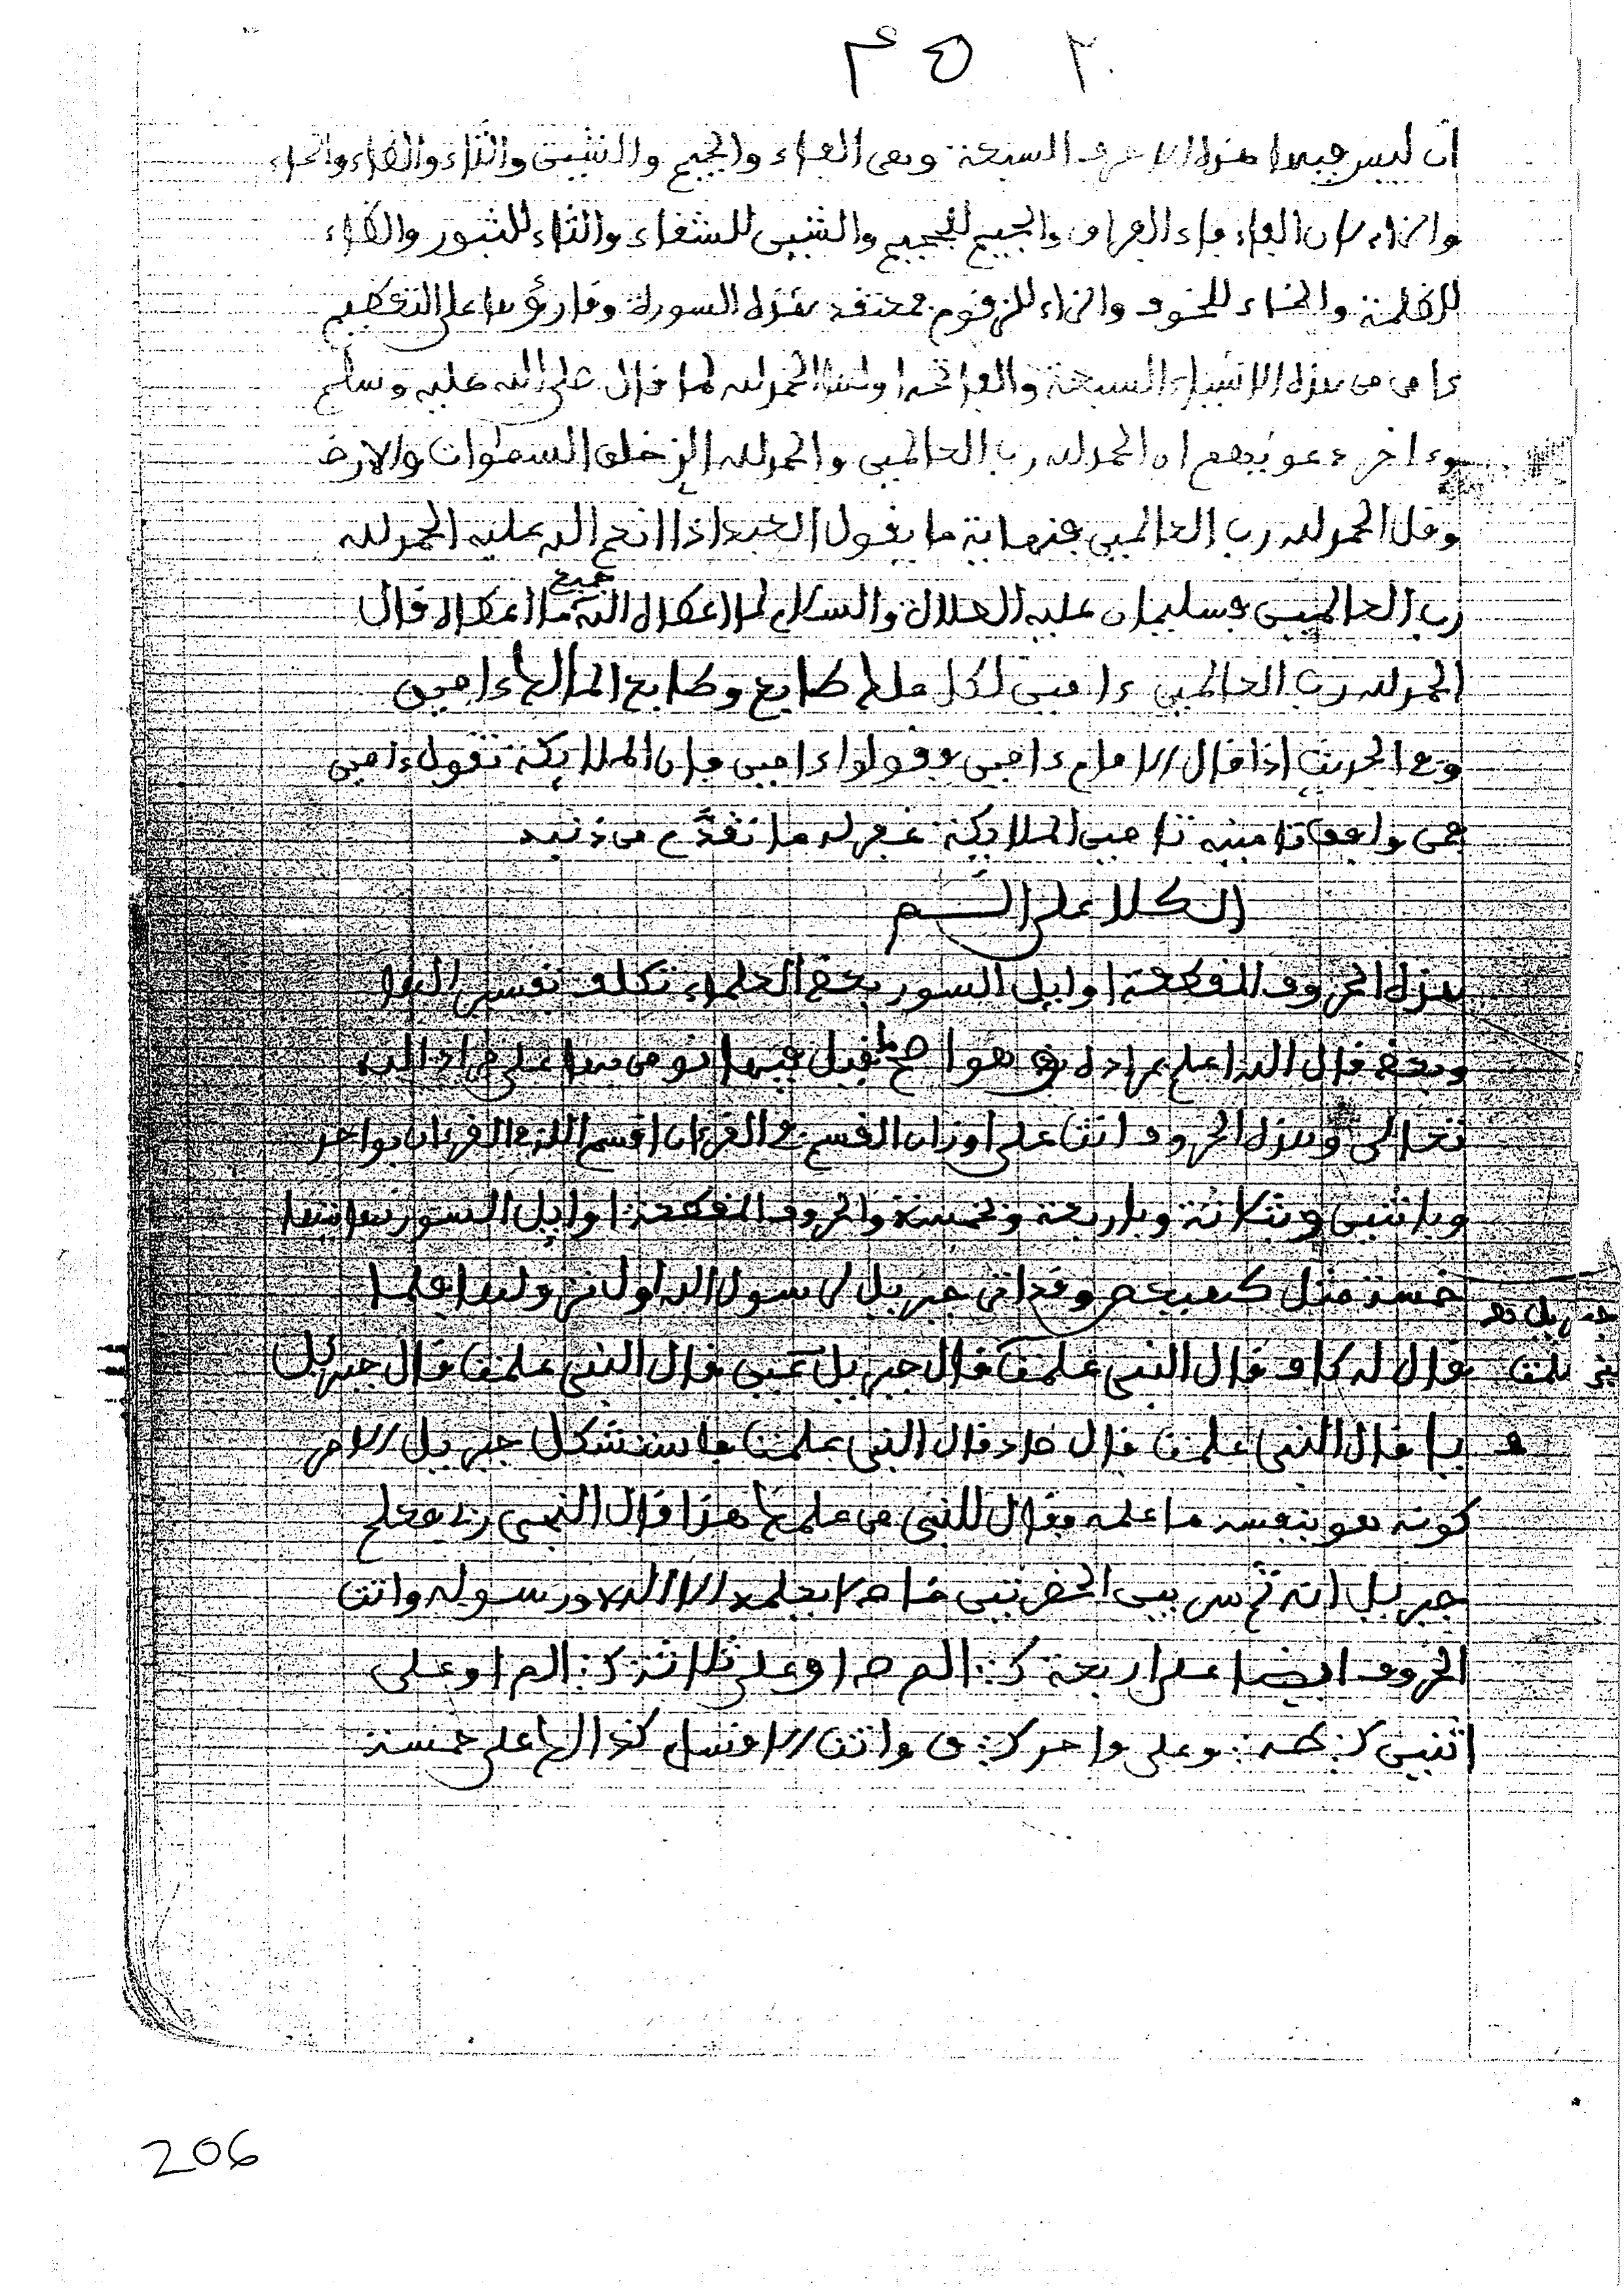 ٢ ٥ ٣
ان ليس فيها هذه الاحرف السبعة وهي الفاء والجيم والشين والثاء والظاء والخاء
والزاء لان الفاء فاء الفراق والجيم للجحيم والشين للشقاء والثاء للثبور والظاء
للظلمة والخاء للخوف والزاء للزقوم فمعتقد هذه السورة وقارؤها على التعظيم
ءامن من هذه الاشياء السبعة والفاتحة اولها الحمد لله لما قال صلى الله عليه وسلم
وءاخر دعويهم ان الحمد لله رب العالمين والحمد لله الذي خلق السموات والارض
وقل الحمد لله رب العالمين فنهاية ما يقول العبد اذا انعم الله عليه الحمد لله
رب العالمين فسليمان عليه الصلاة والسلام لما اعطاه الله جميع ما اعطاه قال
الحمد لله رب العالمين ءامين لكل طابع وطابع ءامين
وفي الحديث اذا قال الامام ءامين فقولوا ءامين فان الملايكة تقول ءامين
فمن وافق تامينه تامين الملايكة غفر له ما تقدم من ذنبه
الكلام على الـم
هذه الحروف المقطعة اوايل السور بعض العلماء تكلف تفسيرها
وبعض قال الله اعلم بمراده فقيل فيها نومن بها على مراد الله
تعالى وهذه الحروف اتت على اوزان القسم في القرءان اقسم الله في القرءان بواحد
وباثنين وبثلاثة وباربعة وبخمسة والحروف المقطعة اوايل السور نهايتها
خمسة مثل كهيعص وقد اتى جبريل لرسول الله اول نزولها فلما
قال له كاف قال النبي علمت قال جبريل عين قال النبي علمت قال جبريل
يا قال النبي علمت قال صاد قال النبي علمت فاستشكل جبريل الامر
كونه هو بنفسه ما علمه فقال للنبي من علمك هذا قال النبي ربي فعلم
جبريل انه ثم سر بين الحضرتين خاص لا يعلمه الا الله ورسوله واتت
الحروف ايضا على اربعة كـ: المص او على ثلاثة كـ: الم او على
اثنين كـ: طه: وعلى واحد كـ: ق واتت كذالك على خمسة
206